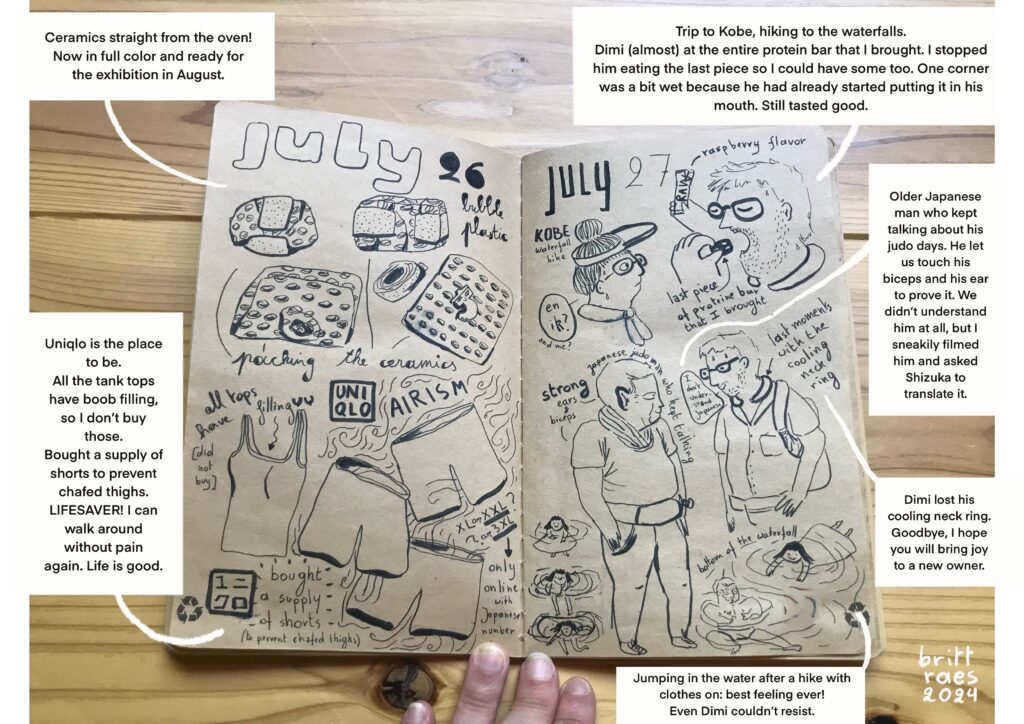 Ceramics straight from the oven!
Now in full color and ready for
the exhibition in August.
Trip to Kobe, hiking to the waterfalls.
Dimi (almost) at the entire protein bar that I brought. I stopped
him eating the last piece so I could have some too. One corner
was a bit wet because he had already started putting it in his
mouth. Still tasted good.
Older Japanese
man who kept
talking about his
judo days. He let
us touch his
biceps and his ear
to prove it. We
didn't understand
him at all, but I
sneakily filmed
him and asked
Shizuka to
translate it.
Uniqlo is the place
to be.
All the tank tops
have boob filling,
so I don't buy
those.
Bought a supply of
shorts to prevent
chafed thighs.
LIFESAVER! I can
walk around
without pain
again. Life is good.
Dimi lost his
cooling neck ring.
Goodbye, I hope
you will bring joy
to a new owner.
Jumping in the water after a hike with
clothes on: best feeling ever!
Even Dimi couldn't resist.
July 26
bubble
plastic
packing the ceramics
all tops
have
filling
[did
not
buy]
UNI
QLO
AIRISM
XL or XXL?
or 3XL
only
online
with
Japanese
number
ユニ
クロ
bought
a supply
of shorts
(to prevent chafed thighs)
JULY 27
raspberry flavor
KOBE
waterfall
hike
en
ik?
and me?
last piece
of proteine bar
that I brought
strong
ears
&
biceps
japanese judo man who kept talking
I don't
under-
stand
Japanese
last moments
with the
cooling
neck
ring
bottom of the waterfall
britt
raes
2024